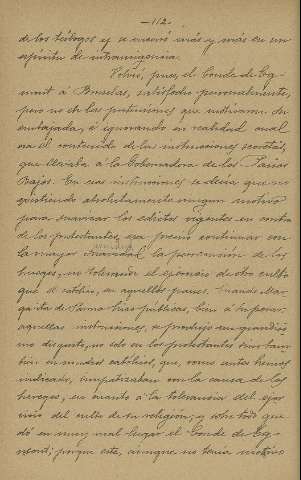 —112—
de los teólogos y se encerró más y más en un
espíritu de intransigencia.
Volvió, pues, el Conde de Eg-
mont á Bruselas, satisfecho personalmente,
pero no de las pretensiones que motivaron su
embajada, é ignorando en realidad cual
era el contenido de las instrucciones secretas,
que llevaba á la Gobernadora de los Países
Bajos. En esas instrucciones se decía que no
existiendo absolutamente ningun motivo
para suavizar los edictos vigentes en contra
de los protestantes, era preciso continuar con
la mayor la persecución de los
herejes, no tolerando el ejercicio de otro culto
que el católico, en aquellos países. Cuando Mar-
garita de Parma hizo públicas, bien á su pesar,
aquellas instrucciones, se produjo un grandísi-
mo disgusto, no solo en los protestantes sino tam-
bién en muchos católicos, que, como antes hemos
indicado, simpatizaban con la causa de los
herejes, en cuanto á la tolerancia del ejer-
cicio del culto de su religión; y sobre todo que-
dó en muy mal lugar el Conde de Eg-
mont; porque este, aunque no tenía motivo